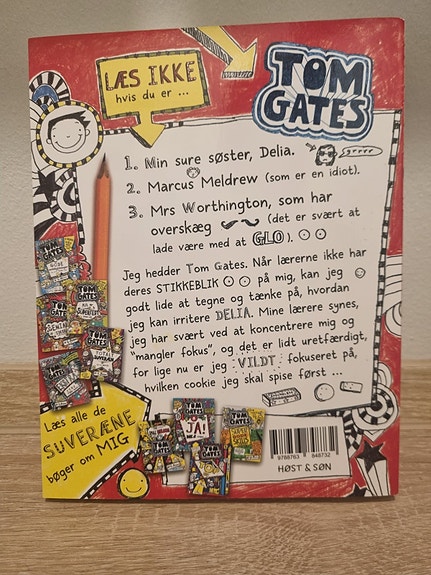 LÆS IKKE
hvis du er ...
TOM
GATES
1. Min sure søster, Delia.
grrrr
2. Marcus Meldrew (som er en idiot).
3. Mrs Worthington, som har
overskæg (det er svært at
lade være med at GLO).
Jeg hedder Tom Gates. Når lærerne ikke har
deres STIKKEBLIK på mig, kan jeg
godt lide at tegne og tænke på, hvordan
jeg kan irritere DELIA. Mine lærere synes,
jeg har svært ved at koncentrere mig og
"mangler fokus", og det er lidt uretfærdigt,
for lige nu er jeg VILDT fokuseret på,
hvilken cookie jeg skal spise først ...
TOM
GATES
TOM
GATES
TOM
GATES
TOM
GATES
TOM
GATES
Læs alle de
SUVERÆNE
bøger om MIG
TOM
GATES
JA!
TOM
GATES
TOM
GATES
TOM
GATES
9788763 848732
HØST & SØN